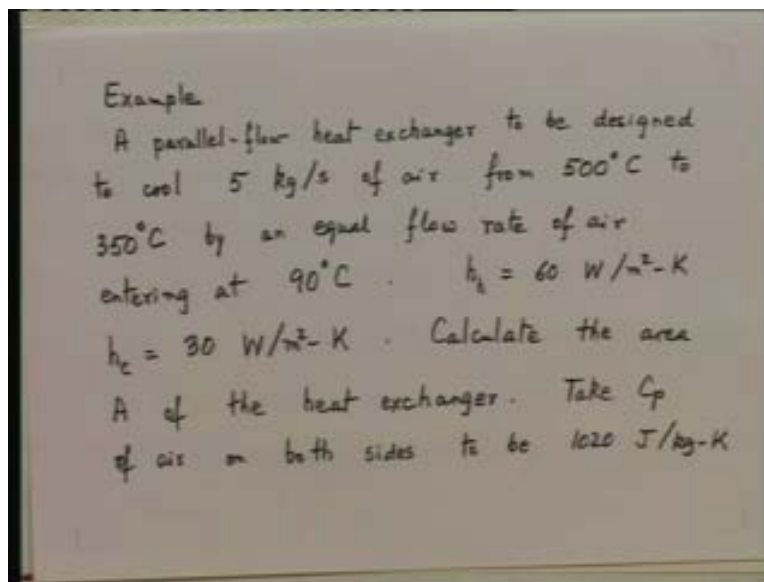 Example
A parallel-flow heat exchanger to be designed
to cool 5 kg/s of air from 500°C to
350°C by an equal flow rate of air
entering at 90°C. hₕ = 60 W/m²-K
h_c = 30 W/m²-K. Calculate the area
A of the heat exchanger. Take Cp
of air on both sides to be 1020 J/kg-K